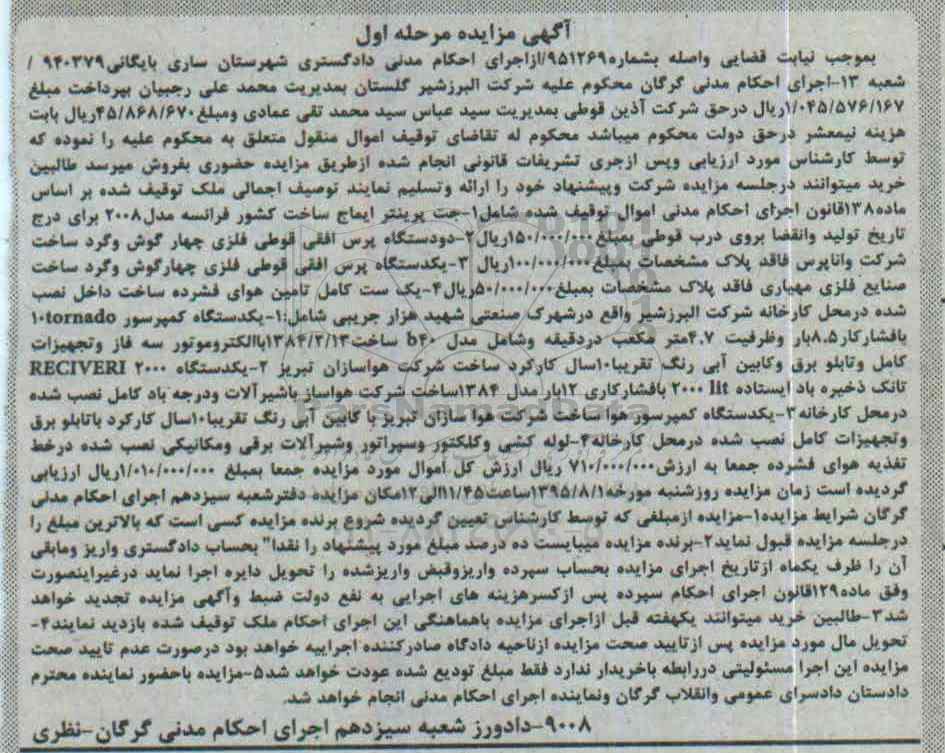 آگهی مزایده مرحله اول
بموجب نیابت قضایی واصله بشماره۹۵۱۲۶۹/ازاجرای احکام مدنی دادگستری شهرستان ساری بایگانی۹۴۰۳۷۹ /
شعبه ۱۳-اجرای احکام مدنی گرگان محکوم علیه شرکت البرزشیر گلستان بمدیریت محمد علی رجبیان بپرداخت مبلغ
۱/۰۴۵/۵۷۶/۱۶۷ریال درحق شرکت آذین قوطی بمدیریت سید عباس سید محمد تقی عمادی ومبلغ۴۵/۸۶۸/۶۷۰ریال بابت
هزینه نیمعشر درحق دولت محکوم میباشد محکوم له تقاضای توقیف اموال منقول متعلق به محکوم علیه را نموده که
توسط کارشناس مورد ارزیابی وپس ازجری تشریفات قانونی انجام شده ازطریق مزایده حضوری بفروش میرسد طالبین
خرید میتوانند درجلسه مزایده شرکت وپیشنهاد خود را ارائه وتسلیم نمایند توصیف اجمالی ملک توقیف شده بر اساس
ماده۱۳۸قانون اجرای احکام مدنی اموال توقیف شده شامل۱-جت پرینتر ایماج ساخت کشور فرانسه مدل۲۰۰۸ برای درج
تاریخ تولید وانقضا بروی درب قوطی بمبلغ۱۵۰/۰۰۰/۰۰۰ریال۲-دودستگاه پرس افقی قوطی فلزی چهار گوش وگرد ساخت
شرکت واناپرس فاقد پلاک مشخصات بمبلغ۱۰۰/۰۰۰/۰۰۰ریال ۳-یکدستگاه پرس افقی قوطی فلزی چهارگوش وگرد ساخت
صنایع فلزی مهیاری فاقد پلاک مشخصات بمبلغ۵۰/۰۰۰/۰۰۰ریال۴-یک ست کامل تامین هوای فشرده ساخت داخل نصب
شده درمحل کارخانه شرکت البرزشیر واقع درشهرک صنعتی شهید هزار جریبی شامل:۱-یکدستگاه کمپرسور tornado۱۰
بافشارکار۸.۵بار وظرفیت ۴.۷متر مکعب دردقیقه وشامل مدل b۴۰ ساخت۱۳۸۴/۲/۱۳باالکتروموتور سه فاز وتجهیزات
کامل وتابلو برق وکابین آبی رنگ تقریبا۱۰سال کارکرد ساخت شرکت هواسازان تبریز ۲-یکدستگاه RECIVERI ۲۰۰۰
تانک ذخیره باد ایستاده lit ۲۰۰۰ بافشارکاری ۱۲بار مدل ۱۳۸۴ساخت شرکت هواساز باشیرآلات ودرجه باد کامل نصب شده
درمحل کارخانه۳-یکدستگاه کمپرسور هوا ساخت شرکت هوا سازان تبریز با کابین آبی رنگ تقریبا۱۰سال کارکرد باتابلو برق
وتجهیزات کامل نصب شده درمحل کارخانه۴-لوله کشی وکلکتور وسپراتور وشیرآلات برقی ومکانیکی نصب شده درخط
تغذیه هوای فشرده جمعا به ارزش۷۱۰/۰۰۰/۰۰۰ ریال ارزش کل اموال مورد مزایده جمعا بمبلغ ۱/۰۱۰/۰۰۰/۰۰۰ریال ارزیابی
گردیده است زمان مزایده روزشنبه مورخه۱۳۹۵/۸/۱ساعت۱۱/۴۵الی۱۲مکان مزایده دفترشعبه سیزدهم اجرای احکام مدنی
گرگان شرایط مزایده۱-مزایده ازمبلغی که توسط کارشناس تعیین گردیده شروع برنده مزایده کسی است که بالاترین مبلغ را
درجلسه مزایده قبول نماید۲-برنده مزایده میبایست ده درصد مبلغ مورد پیشنهاد را نقدا" بحساب دادگستری واریز ومابقی
آن را ظرف یکماه ازتاریخ اجرای مزایده بحساب سپرده واریزوقبض واریزشده را تحویل دایره اجرا نماید درغیراینصورت
وفق ماده۱۲۹قانون اجرای احکام سپرده پس ازکسرهزینه های اجرایی به نفع دولت ضبط وآگهی مزایده تجدید خواهد
شد۳-طالبین خرید میتوانند یکهفته قبل ازاجرای مزایده باهماهنگی این اجرای احکام ملک توقیف شده بازدید نمایند۴-
تحویل مال مورد مزایده پس ازتایید صحت مزایده ازناحیه دادگاه صادرکننده اجراییه خواهد بود درصورت عدم تایید صحت
مزایده این اجرا مسئولیتی دررابطه باخریدار ندارد فقط مبلغ تودیع شده عودت خواهد شد۵-مزایده باحضور نماینده محترم
دادستان دادسرای عمومی وانقلاب گرگان ونماینده اجرای احکام مدنی انجام خواهد شد.
۹۰۰۸-دادورز شعبه سیزدهم اجرای احکام مدنی گرگان-نظری